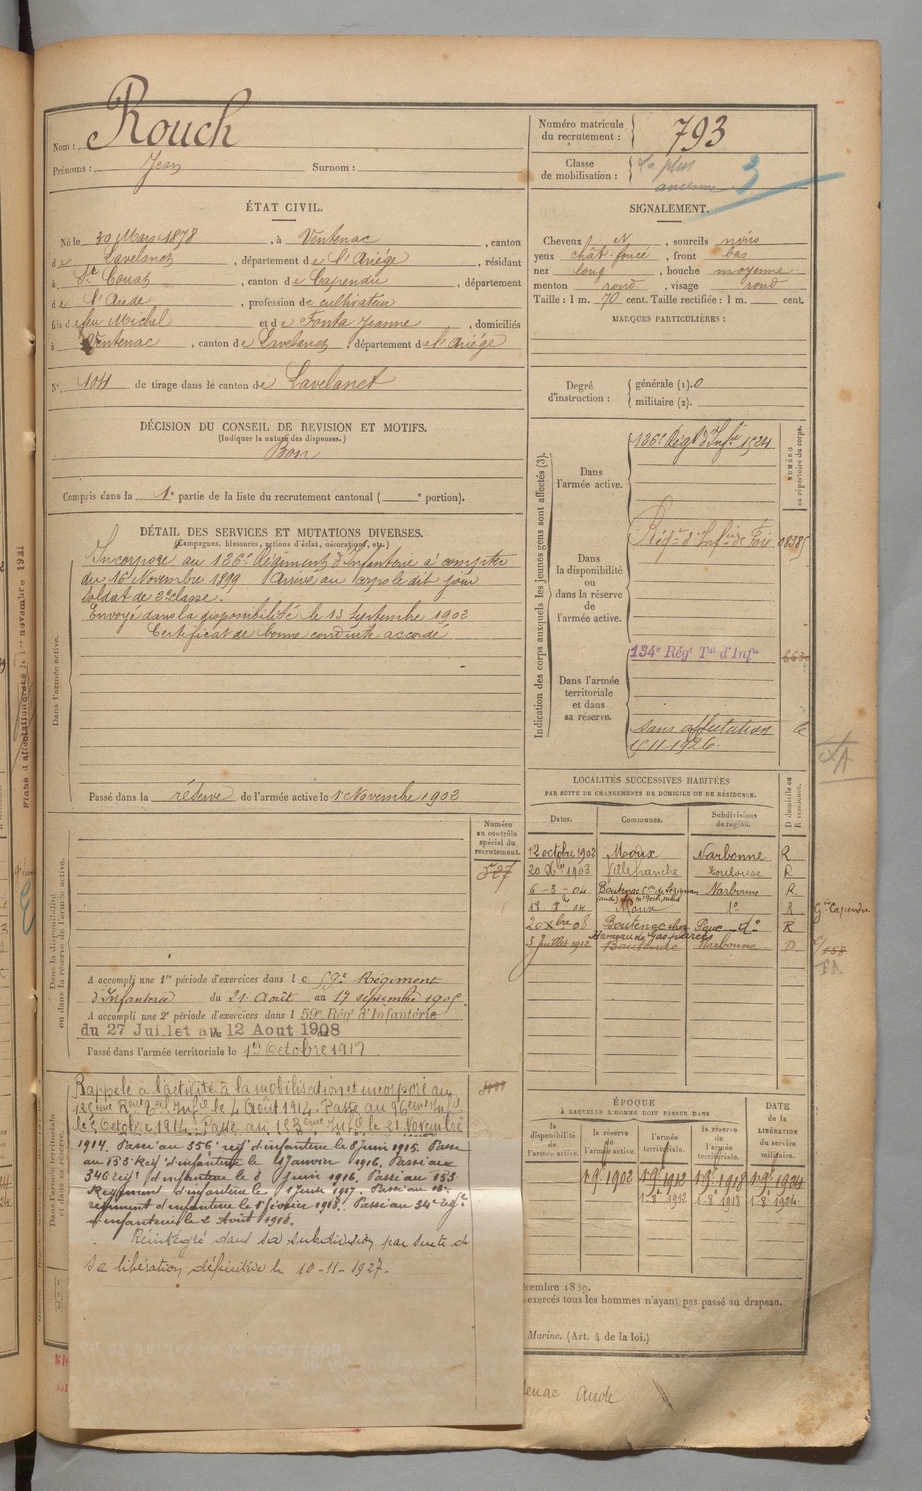 Nom : Rouch
Prénoms : Jean Surnom :
Numéro matricule du recrutement : 793
Classe de mobilisation : La plus ancienne 3
ÉTAT CIVIL.
Né le 30 Mars 1878, à Ventenac, canton
de Lavelanet, département de l'Ariège, résidant
à Couat, canton de Capendu, département
de l'Aude, profession de cultivateur
fils de feu Michel et de Fonta Jeanne, domiciliés
à Ventenac, canton de Lavelanet, département de l'Ariège
N° 104 de tirage dans le canton de Lavelanet
SIGNALEMENT.
Cheveux N, sourcils noirs
yeux chât-foncé, front bas
nez long, bouche moyenne
menton rond, visage rond
Taille : 1 m. 70 cent. Taille rectifiée : 1 m. cent.
MARQUES PARTICULIÈRES :
Degré d'instruction : générale (1). 0
militaire (2).
DÉCISION DU CONSEIL DE REVISION ET MOTIFS.
(Indiquer la nature des dispenses.)
Bon
Compris dans la 1e partie de la liste du recrutement cantonal ( e portion).
DÉTAIL DES SERVICES ET MUTATIONS DIVERSES.
(Campagnes, blessures, actions d'éclat, décorations, etc.)
Dans l'armée active.
Incorporé au 126e Régiment d'Infanterie à compter
du 16 Novembre 1899 Arrivé au corps le dit jour
soldat de 2e classe.
Envoyé dans la disponibilité le 13 Septembre 1902
Certificat de bonne conduite accordé
Passé dans la réserve de l'armée active le 1 Novembre 1902
Numéro au contrôle spécial du recrutement.
527
Dans la disponibilité ou dans la réserve de l'armée active.
A accompli une 1re période d'exercices dans le 59e Régiment
d'Infanterie du 21 Août au 17 septembre 1905
A accompli une 2e période d'exercices dans l 59e Rég d'Infanterie
du 27 Juillet au 12 Aout 1908
Passé dans l'armée territoriale le 1er Octobre 1912
Rappelé à l'activité à la mobilisation et incorporé au
Régt d'Infie le 4 Août 1914. Passé au 96eme Infie
le 5 Octobre 1914. Passé au eme Infie le 21 Novembre
1914. Passé au 356e régt d'infanterie le 8 juin 1915. Passé
au 153 Régt d'infanterie le 4 Janvier 1916. Passé aux
346 régt d'infanterie le 8 juin 1916. Passé au 153
Régiment d'infanterie le 1 juin 1917. Passé au
régiment d'infanterie le 1 février 1918. Passé au 34e régt
d'infanterie le 2 Août 1918.
Réintégré dans sa subdivision par suite de
sa libération définitive le 10-11-1927.
Indication des corps auxquels les jeunes gens sont affectés (3).
NUMÉRO au répertoire du corps.
Dans l'armée active.
126e Régt d'Infie 1524
Dans la disponibilité ou dans la réserve de l'armée active.
Régt d'Infie de Foix
134e Régt Tal d'Infie
Dans l'armée territoriale et dans sa réserve.
sans affectation
11.1926.
LOCALITÉS SUCCESSIVES HABITÉES
PAR SUITE DE CHANGEMENTS DE DOMICILE OU DE RÉSIDENCE.
Dates. Communes. Subdivisions de région. D domicile ou R résidence.
12 octobre 1902 Moux Narbonne R
20 Xbre 1903 Villefranche Toulouse R
6-3-04 Boutenac Narbonne R
18 Xbre 04 Moux do R
20 Xbre 08 Boutenac chez Pouc do R
Hameau de Gasparets
5 Juillet 1912 Boutenac Narbonne D
Gie Capendu
ÉPOQUE
À LAQUELLE L'HOMME DOIT PASSER DANS
la disponibilité de l'armée active. la réserve de l'armée active. l'armée territoriale. la réserve de l'armée territoriale. DATE de la LIBÉRATION du service militaire.
1.9.1902 1.9.1912 1.9.1918 1.9.1924
1.8.1912 1.8.1918 1.8.1924
exercés tous les hommes n'ayant pas passé au drapeau.
Marine. (Art. 4 de la loi.)
Aude